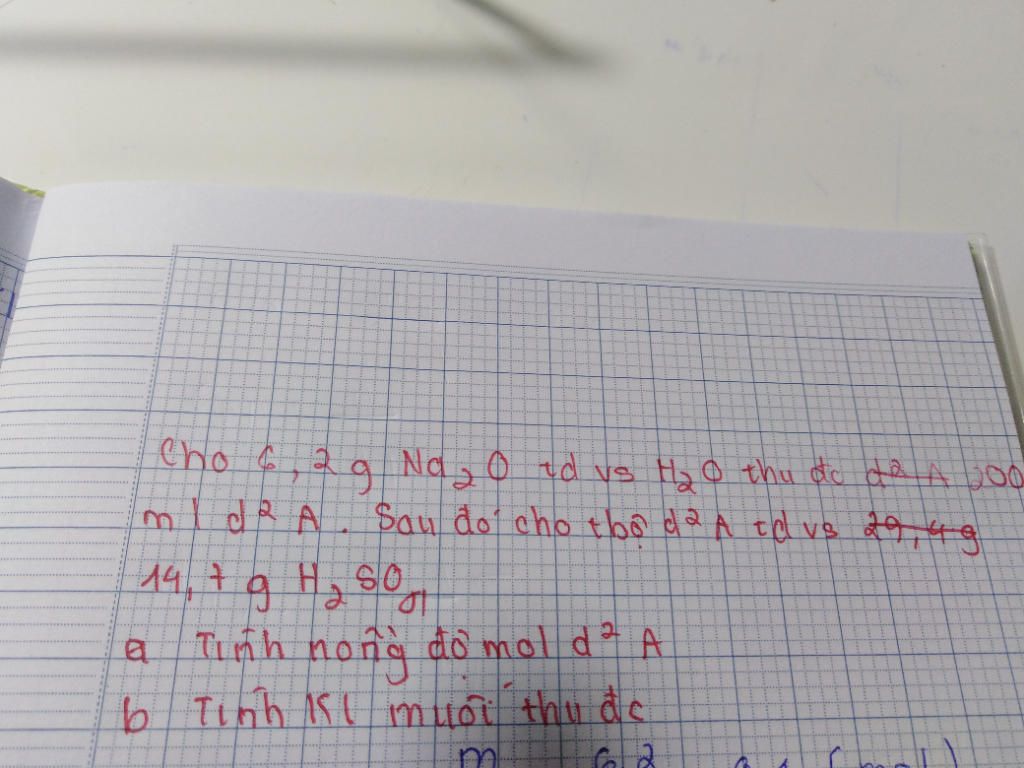 Cho 6,2g Na₂O td vs H₂O thu đc d² A 200
ml d² A. Sau đó cho tbộ d² A td vs 29,4g
14,7g H₂SO₄
a Tính nồng độ mol d² A
b Tính Kl muối thu đc
m 6,2